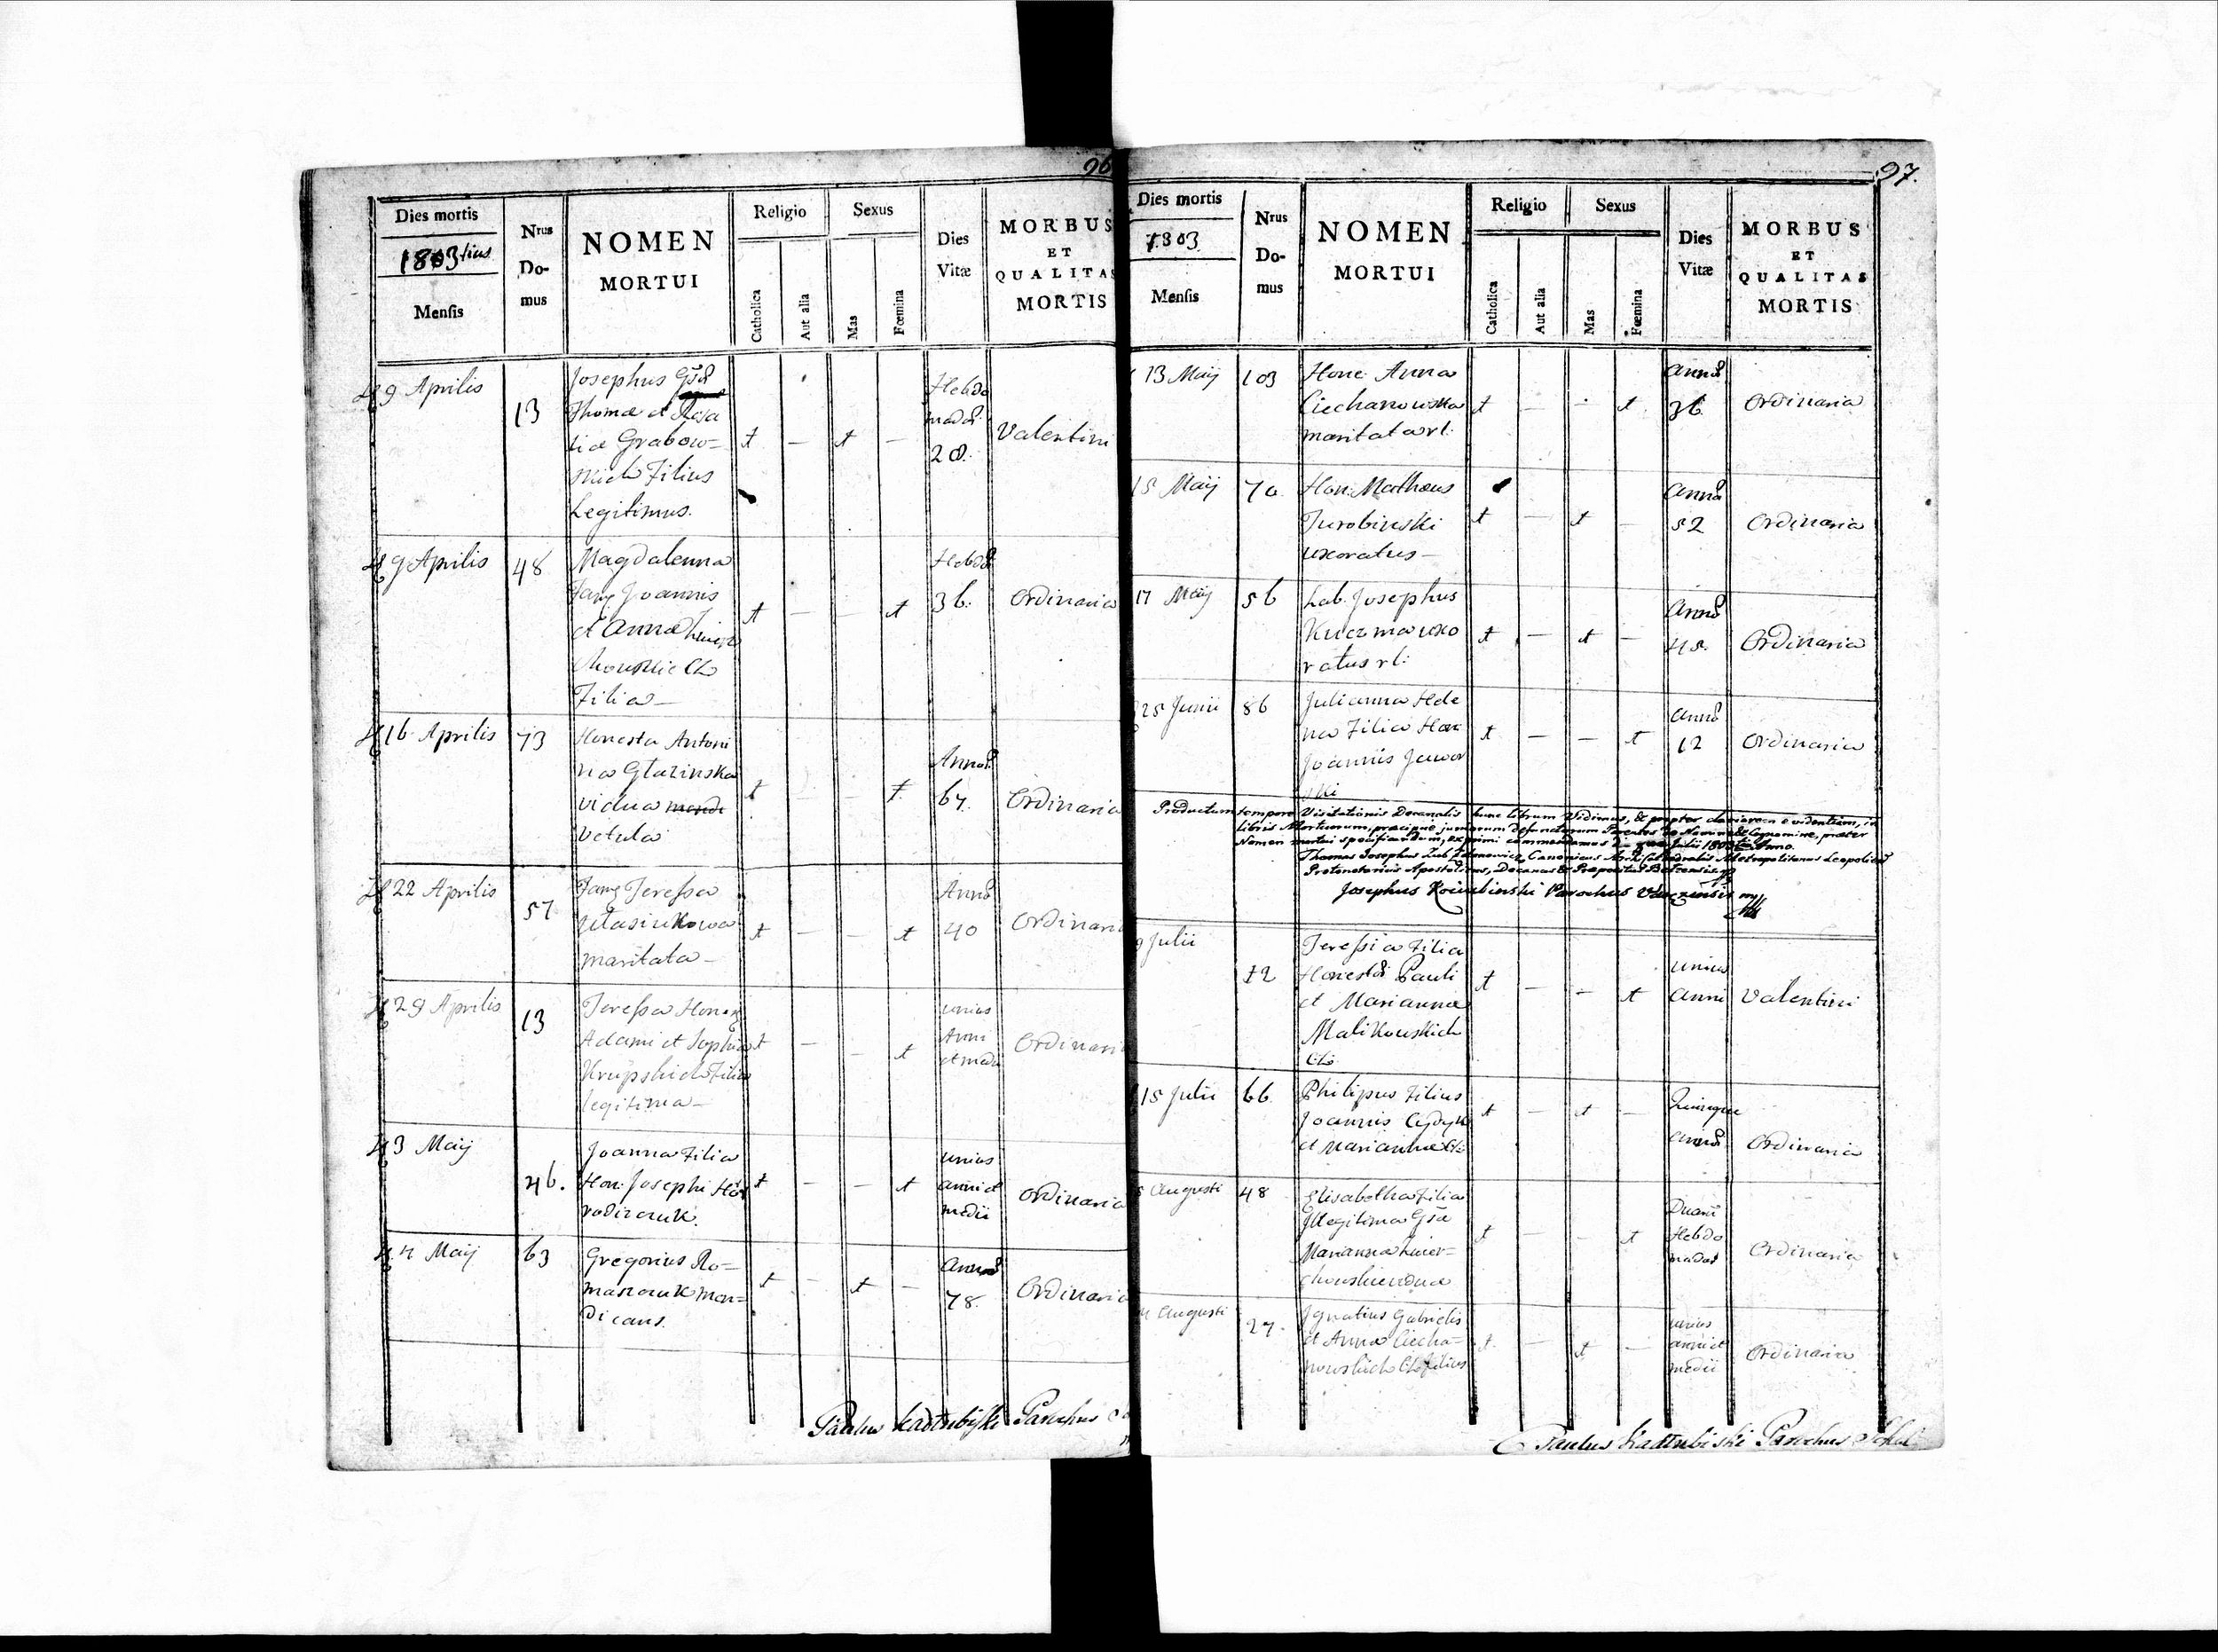 96
Dies mortis
1803tius
Mensis
Nrus
Do-
mus
NOMEN
MORTUI
Religio
Catholica
Aut alia
Sexus
Mas
Fœmina
Dies
Vitæ
MORBUS
ET
QUALITAS
MORTIS
9 Aprilis
13
Josephus
Thomæ et Rosa
liæ Grabow=
skich Filius
Legitimus.
t — t —
Hebdo
madar
28.
Valentini
9 Aprilis
48
Magdalenna
Fam Joannis
et Annæ
Filia —
t — — t
Hebdo
36.
Ordinaria
16 Aprilis
73
Honesta Antoni
na Glazinska
vidua
vetula
t — — t
Annor
67.
Ordinaria
22 Aprilis
57
Fam Teressa
maritata —
t — — t
Anno
40
Ordinaria
29 Aprilis
13
Teressa Hon
Adami et Sophiæ
Krupskich Filia
legitima —
t — — t
unius
Anni
et medii
Ordinaria
3 Maij
46.
Joanna Filia
Hon: Josephi Ho
rodizcuk.
t — — t
unius
anni et
medii
Ordinaria
4 Maij
63
Gregorius Ro=
maszcuk men=
dicans.
t — t —
Anno
78.
Ordinaria
Paulus Kadłubiski Parochus
97.
Dies mortis
1803
Mensis
Nrus
Do-
mus
NOMEN
MORTUI
Religio
Catholica
Aut alia
Sexus
Mas
Fœmina
Dies
Vitæ
MORBUS
ET
QUALITAS
MORTIS
13 Maij
103
Hone: Anna
Ciechanowska
maritata rl:
t — — t
Anno
36.
Ordinaria
15 Maij
70.
Hon: Matheus
Turobinski
uxoratus —
t — t —
Anno
52
Ordinaria
17 Maij
56
Lab. Josephus
Kuczma uxo
ratus rl:
t — t —
Anno
45.
Ordinaria
25 Junii
86
Julianna Hele
na Filia Hon
Joannis Jawor
ski
t — — t
Anno
12
Ordinaria
Productum tempore Visitationis Decanalis hunc librum Vidimus, & propter clariorem evidentiam, in
libris Mortuorum, præcipue juniorum defunctorum Parentes de Nomine & Cognomine, præter
Nomen mortui specificandum, exprimi commendamus Julii 1803 Anno.
Thomas Josephus Canonicus Metropolitanus Leopoliens
Protonotarius Apostolicus, Decanus & Præpositus Belzensis
Josephus Parochus
9 Julii
12
Teressia Filia
Honestor Pauli
et Mariannæ
Malikowskich
t — — t
unius
anni
Valentini
15 Julii
66
Philipus Filius
Joannis
et Mariannæ
t — t —
Quinque
annor
Ordinaria
Augusti
48
Elisabetha Filia
Illegitima
Marianna
t — — t
Duarum
Hebdo
madar
Ordinaria
Augusti
27.
Ignatius Gabrielis
et Annæ Ciecha=
nowskich Filius
t — t —
unius
anni et
medii
Ordinaria
Paulus Kadłubiski Parochus